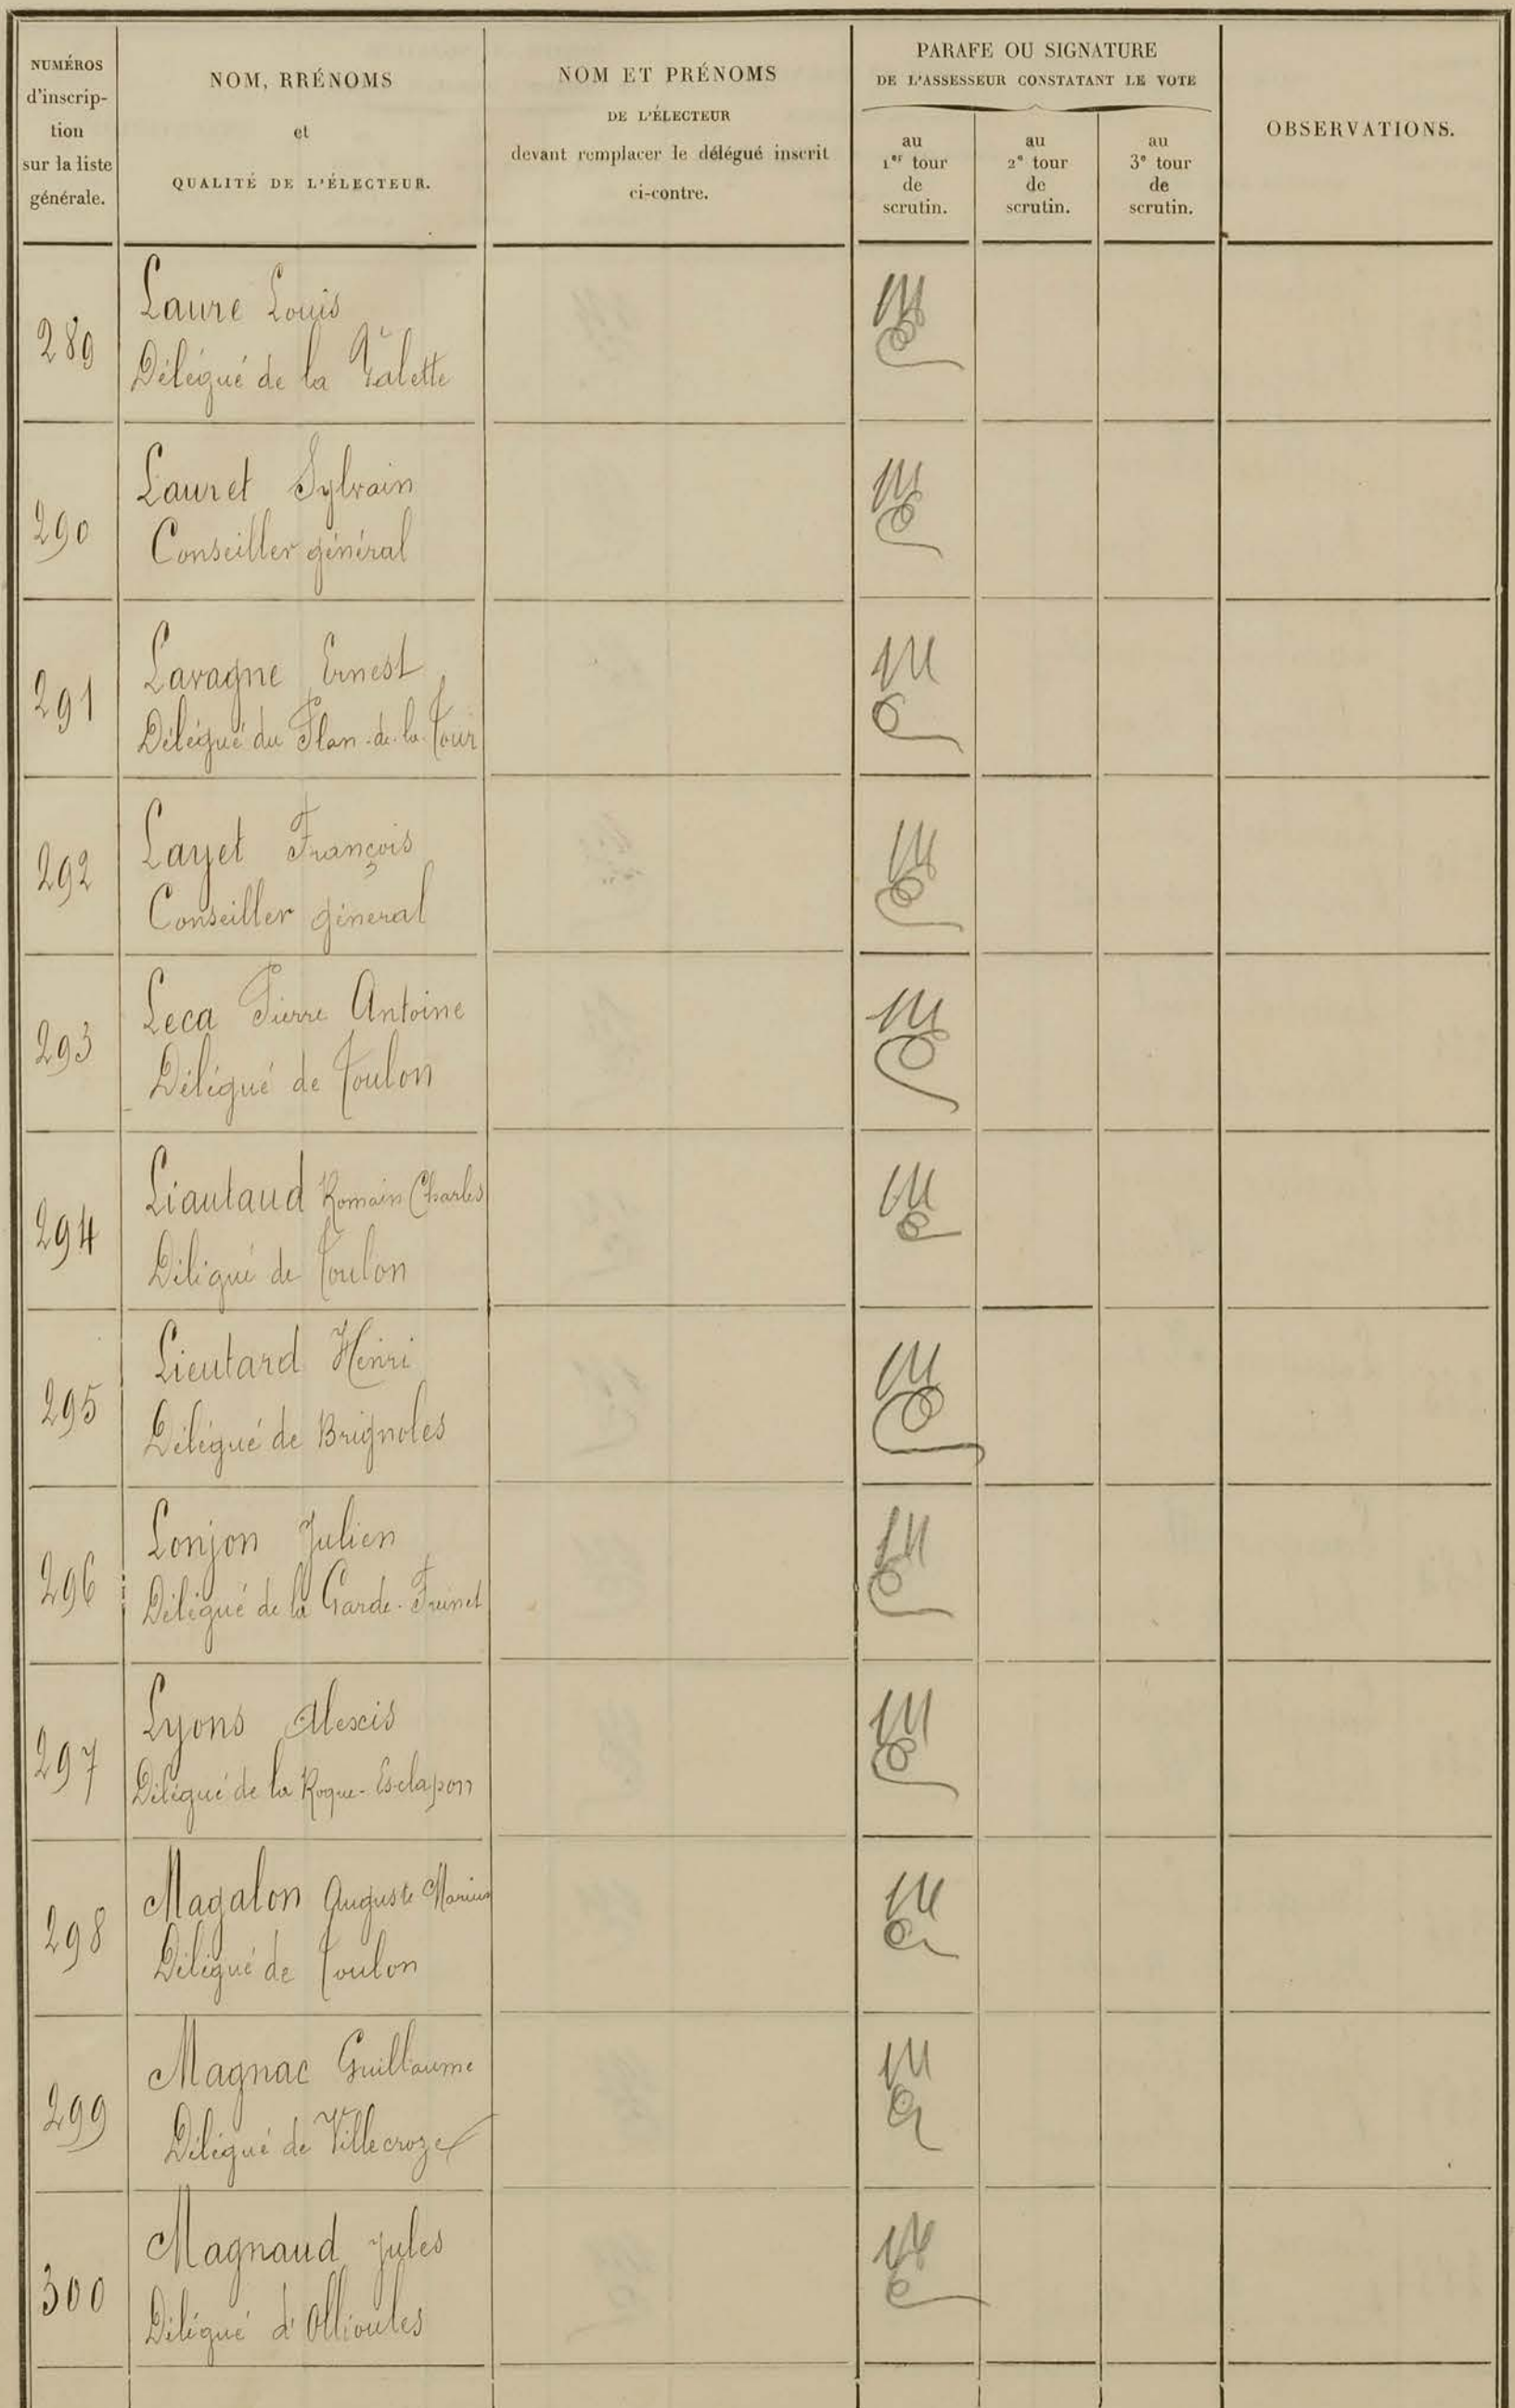 NUMÉROS
d'inscrip-
tion
sur la liste
générale.
NOM, RRÉNOMS
et
QUALITÉ DE L'ÉLECTEUR.
NOM ET PRÉNOMS
DE L'ÉLECTEUR
devant remplacer le délégué inscrit
ci-contre.
PARAFE OU SIGNATURE
DE L'ASSESSEUR CONSTATANT LE VOTE
au
1er tour
de
scrutin.
au
2e tour
de
scrutin.
au
3e tour
de
scrutin.
OBSERVATIONS.
289
Laure Louis
Délégué de la Valette
290
Lauret Sylvain
Conseiller général
291
Lavagne Ernest
Délégué du Plan-de-la-Tour
292
Layet François
Conseiller général
293
Leca Pierre Antoine
Délégué de Toulon
294
Liautaud Romain Charles
Délégué de Toulon
295
Lieutard Henri
Délégué de Brignoles
296
Lonjon Julien
Délégué de la Garde-Freinet
297
Lyons Alexis
Délégué de la Roque-Esclapon
298
Magalon Auguste Marius
Délégué de Toulon
299
Magnac Guillaume
Délégué de Villecroze
300
Magnaud Jules
Délégué d'Ollioules